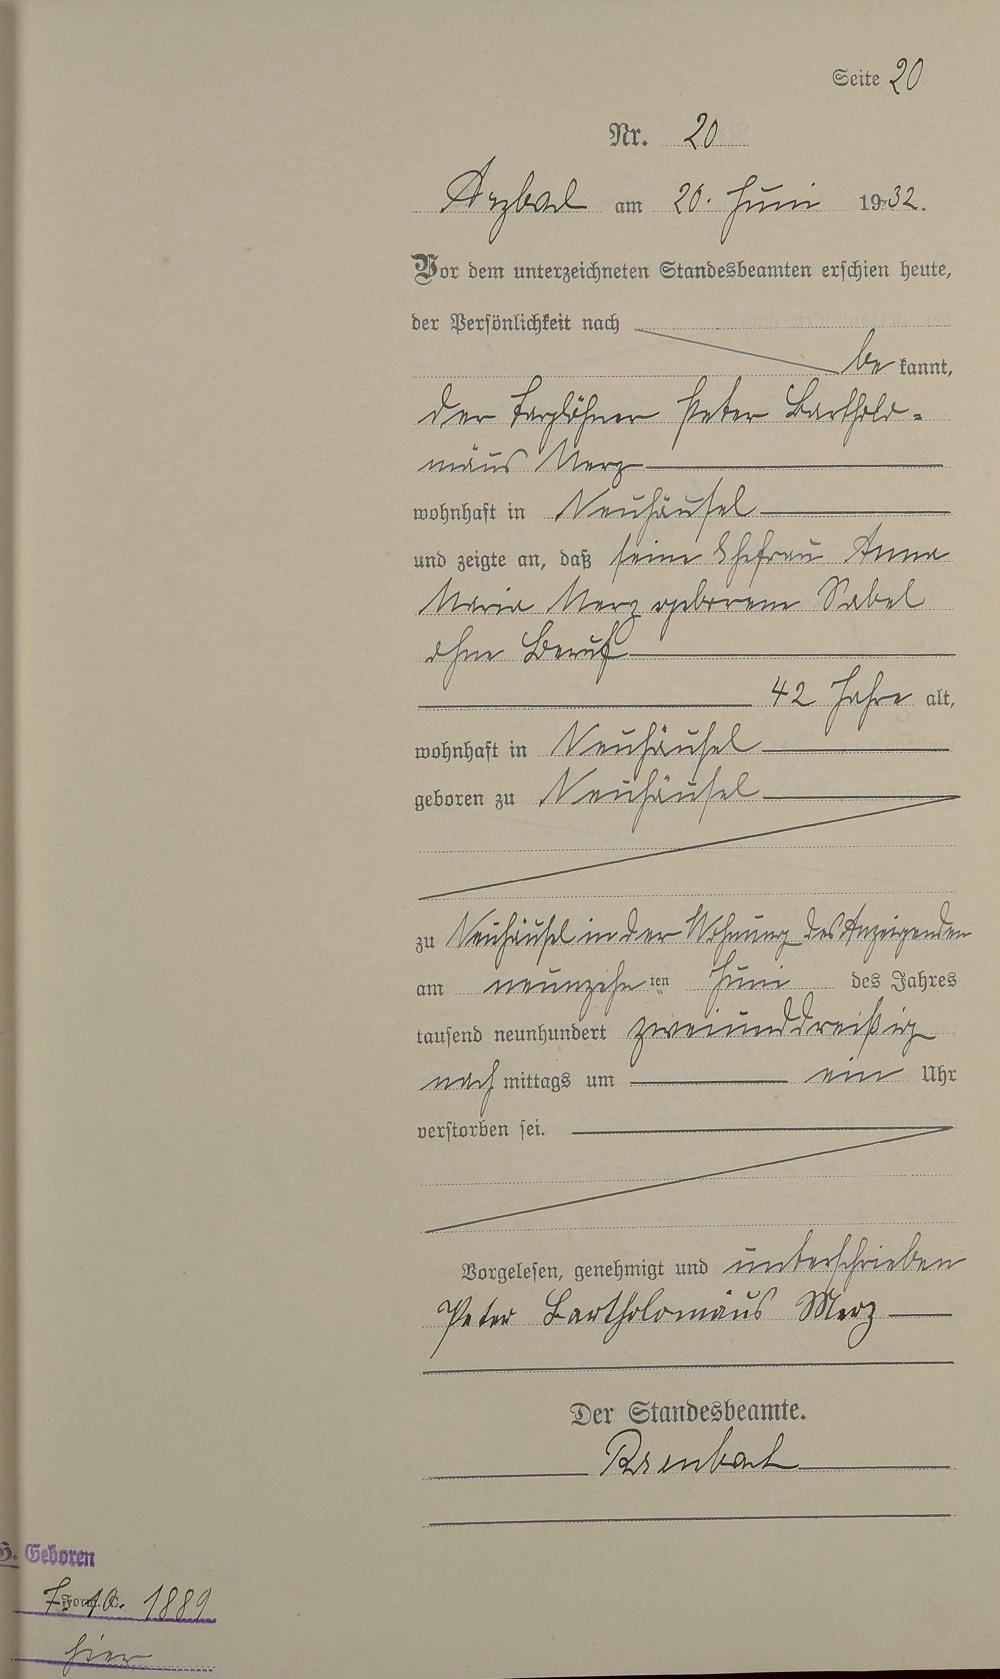 Seite 20
Nr. 20
Arzbach am 20. Juni 1932.
Vor dem unterzeichneten Standesbeamten erschien heute,
der Persönlichkeit nach
bekannt,
der Taglöhner Peter Bartholo=
mäus Merz
wohnhaft in Neuhäusel
und zeigte an, daß seine Ehefrau Anna
Maria Merz geborene Sabel
ohne Beruf
42 Jahre alt,
wohnhaft in Neuhäusel
geboren zu Neuhäusel
zu Neuhäusel in der Wohnung des Anzeigenden
am neunzehnten Juni des Jahres
tausend neunhundert zweiunddreißig
nachmittags um ein Uhr
verstorben sei.
Vorgelesen, genehmigt und unterschrieben
Peter Bartholomäus Merz
Der Standesbeamte.
H. Geboren
7. 10. 1889
hier